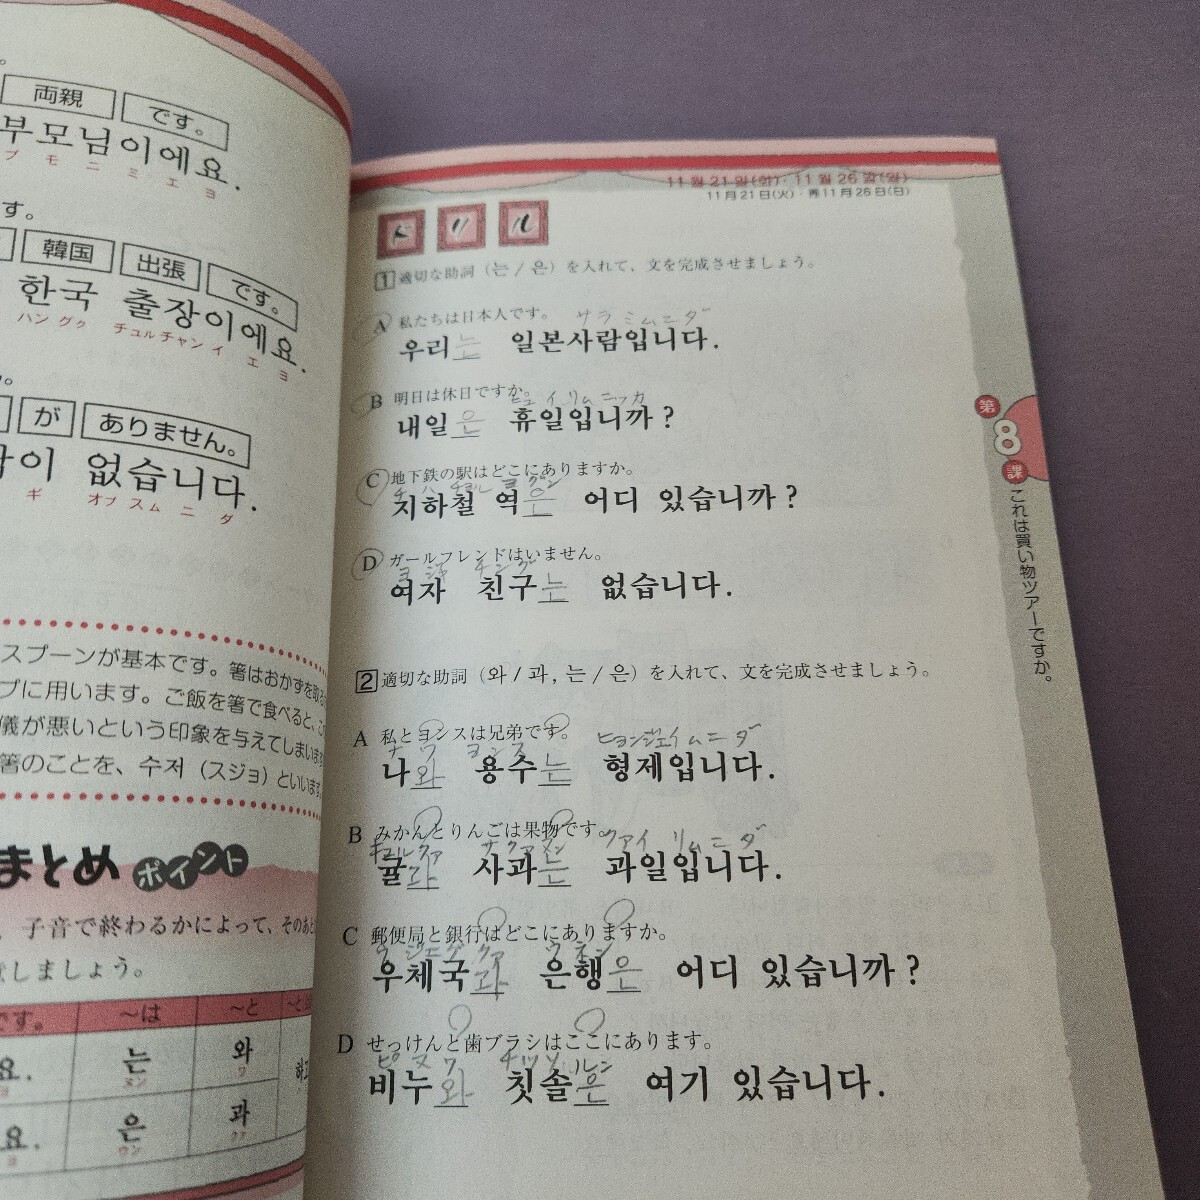 両親 です。
부모님이에요.
プ モ ニ ミ エ ヨ
す。
韓国 出張 です。
한국 출장이에요.
ハン グク チュルチャン イ エ ヨ
が ありません。
이 없습니다.
ギ オプ スム ニ ダ
スプーンが基本です。箸はおかずを取
プに用います。ご飯を箸で食べると、こ
儀が悪いという印象を与えてしまいます
箸のことを、수저（スジョ）といいます
まとめ ポイント
、子音で終わるかによって、そのあと
しましょう。
です。 ～は ～と
요. 는 와
ヨ ヌン ワ
요. 은 과
ヨ ウン クァ
11월 21일(화)・11월 26일(일)
11月21日(火)・再11月26日(日)
ドリル
1 適切な助詞（는 / 은）を入れて、文を完成させましょう。
A 私たちは日本人です。 サラミムニダ
우리는 일본사람입니다.
B 明日は休日ですか。
ヒュイリムニッカ
내일은 휴일입니까?
C 地下鉄の駅はどこにありますか。
チハチョル ヨグン
지하철 역은 어디 있습니까?
D ガールフレンドはいません。
ヨジャ チング
여자 친구는 없습니다.
2 適切な助詞（와 / 과, 는 / 은）を入れて、文を完成させましょう。
A 私とヨンスは兄弟です。 ヒョンジェイムニダ
ナワ ヨンス
나와 용수는 형제입니다.
B みかんとりんごは果物です。
キュルクァ サクァヌン クァイリムニダ
귤과 사과는 과일입니다.
C 郵便局と銀行はどこにありますか。
우체국과 은행은 어디 있습니까?
D せっけんと歯ブラシはここにあります。
ピヌワ チッソルン
비누와 칫솔은 여기 있습니다.
第8課 これは買い物ツアーですか。